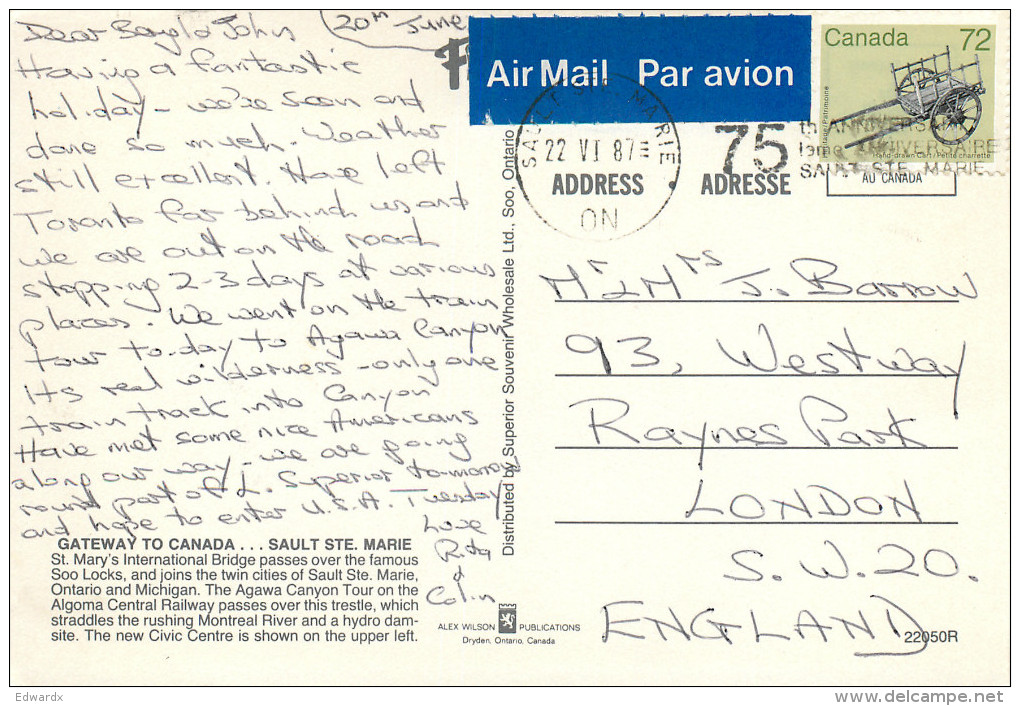 Dear Beryl & John
20th June
Having a fantastic
holiday - we've seen and
done so much. Weather
still excellent. Have left
Toronto far behind us and
we are out on the road
stopping 2-3 days at various
places. We went on the train
tour to-day to Agawa Canyon
Its real wilderness - only one
train track into Canyon
Have met some nice Americans
along our way - we are going
round part of L. Superior to-morrow
and hope to enter U.S.A. Tuesday
Love
Rita
&
Colin
GATEWAY TO CANADA . . . SAULT STE. MARIE
St. Mary's International Bridge passes over the famous
Soo Locks, and joins the twin cities of Sault Ste. Marie,
Ontario and Michigan. The Agawa Canyon Tour on the
Algoma Central Railway passes over this trestle, which
straddles the rushing Montreal River and a hydro dam-
site. The new Civic Centre is shown on the upper left.
ALEX WILSON PUBLICATIONS
Dryden, Ontario, Canada
Distributed by Superior Souvenir Wholesale Ltd., Soo, Ontario
Air Mail Par avion
Canada 72
Heritage/Patrimoine
Hand-drawn Cart/Petite charrette
SAULT STE MARIE
22 VI 87
ON
75
th ANNIVERSARY
ième ANNIVERSAIRE
SAULT STE. MARIE
ADDRESS ADRESSE
AU CANADA
Mr & Mrs J. Barrow
93, Westway
Raynes Park
LONDON
S.W.20.
ENGLAND
22050R
Edwardx
delcampe.net